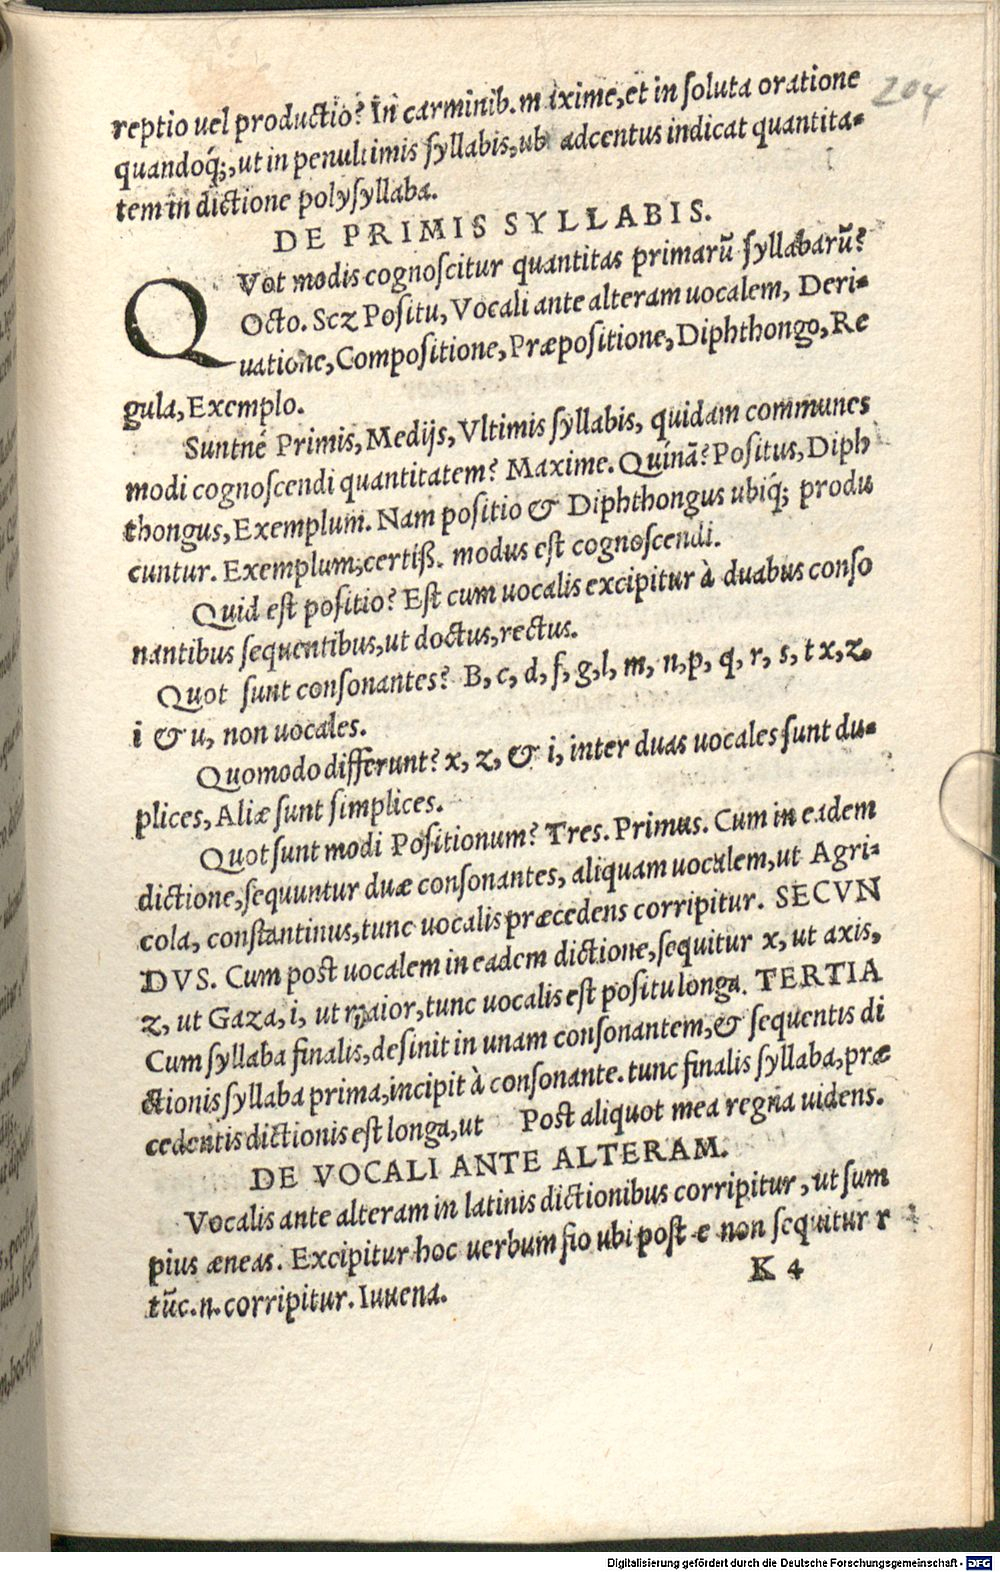 204
reptio uel productio? In carminib. maxime, et in ſoluta oratione
quandoq́;, ut in penultimis ſyllabis, ub adcentus indicat quantita-
tem in dictione polyſyllaba.
DE PRIMIS SYLLABIS.
QVot modis cognoſcitur quantitas primarū ſyllabarū?
Octo. Scz Poſitu, Vocali ante alteram uocalem, Deri-
uatione, Compoſitione, Præpoſitione, Diphthongo, Re
gula, Exemplo.
Suntné Primis, Medijs, Vltimis ſyllabis, quidam communes
modi cognoſcendi quantitatem? Maxime. Quínā? Poſitus, Diph
thongus, Exemplum. Nam poſitio & Diphthongus ubiq́; produ
cuntur. Exemplum, certiß. modus eſt cognoſcendi.
Quid eſt poſitio? Eſt cum uocalis excipitur à duabus conſo
nantibus ſequentibus, ut doctus, rectus.
Quot ſunt conſonantes? B, c, d, f, g, l, m, n, p, q, r, s, t x, z,
i & u, non uocales.
Quomodo differunt? x, z, & i, inter duas uocales ſunt du-
plices, Aliæ ſunt ſimplices.
Quot ſunt modi Poſitionum? Tres. Primus. Cum in eadem
dictione, ſequuntur duæ conſonantes, aliquam uocalem, ut Agri-
cola, conſtantinus, tunc uocalis præcedens corripitur. SECVN
DVS. Cum poſt uocalem in eadem dictione, ſequitur x, ut axis,
z, ut Gaza, i, ut maior, tunc uocalis eſt poſitu longa. TERTIA
Cum ſyllaba finalis, deſinit in unam conſonantem, & ſequentis di
ctionis ſyllaba prima, incipit à conſonante. tunc finalis ſyllaba, præ
cedentis dictionis eſt longa, ut Poſt aliquot mea regna uidens.
DE VOCALI ANTE ALTERAM.
Vocalis ante alteram in latinis dictionibus corripitur, ut ſum
pius æneas. Excipitur hoc uerbum fio ubi poſt e non ſequitur r
tūc. n. corripitur. Iuuena.
K 4
Digitalisierung gefördert durch die Deutsche Forschungsgemeinschaft - DFG